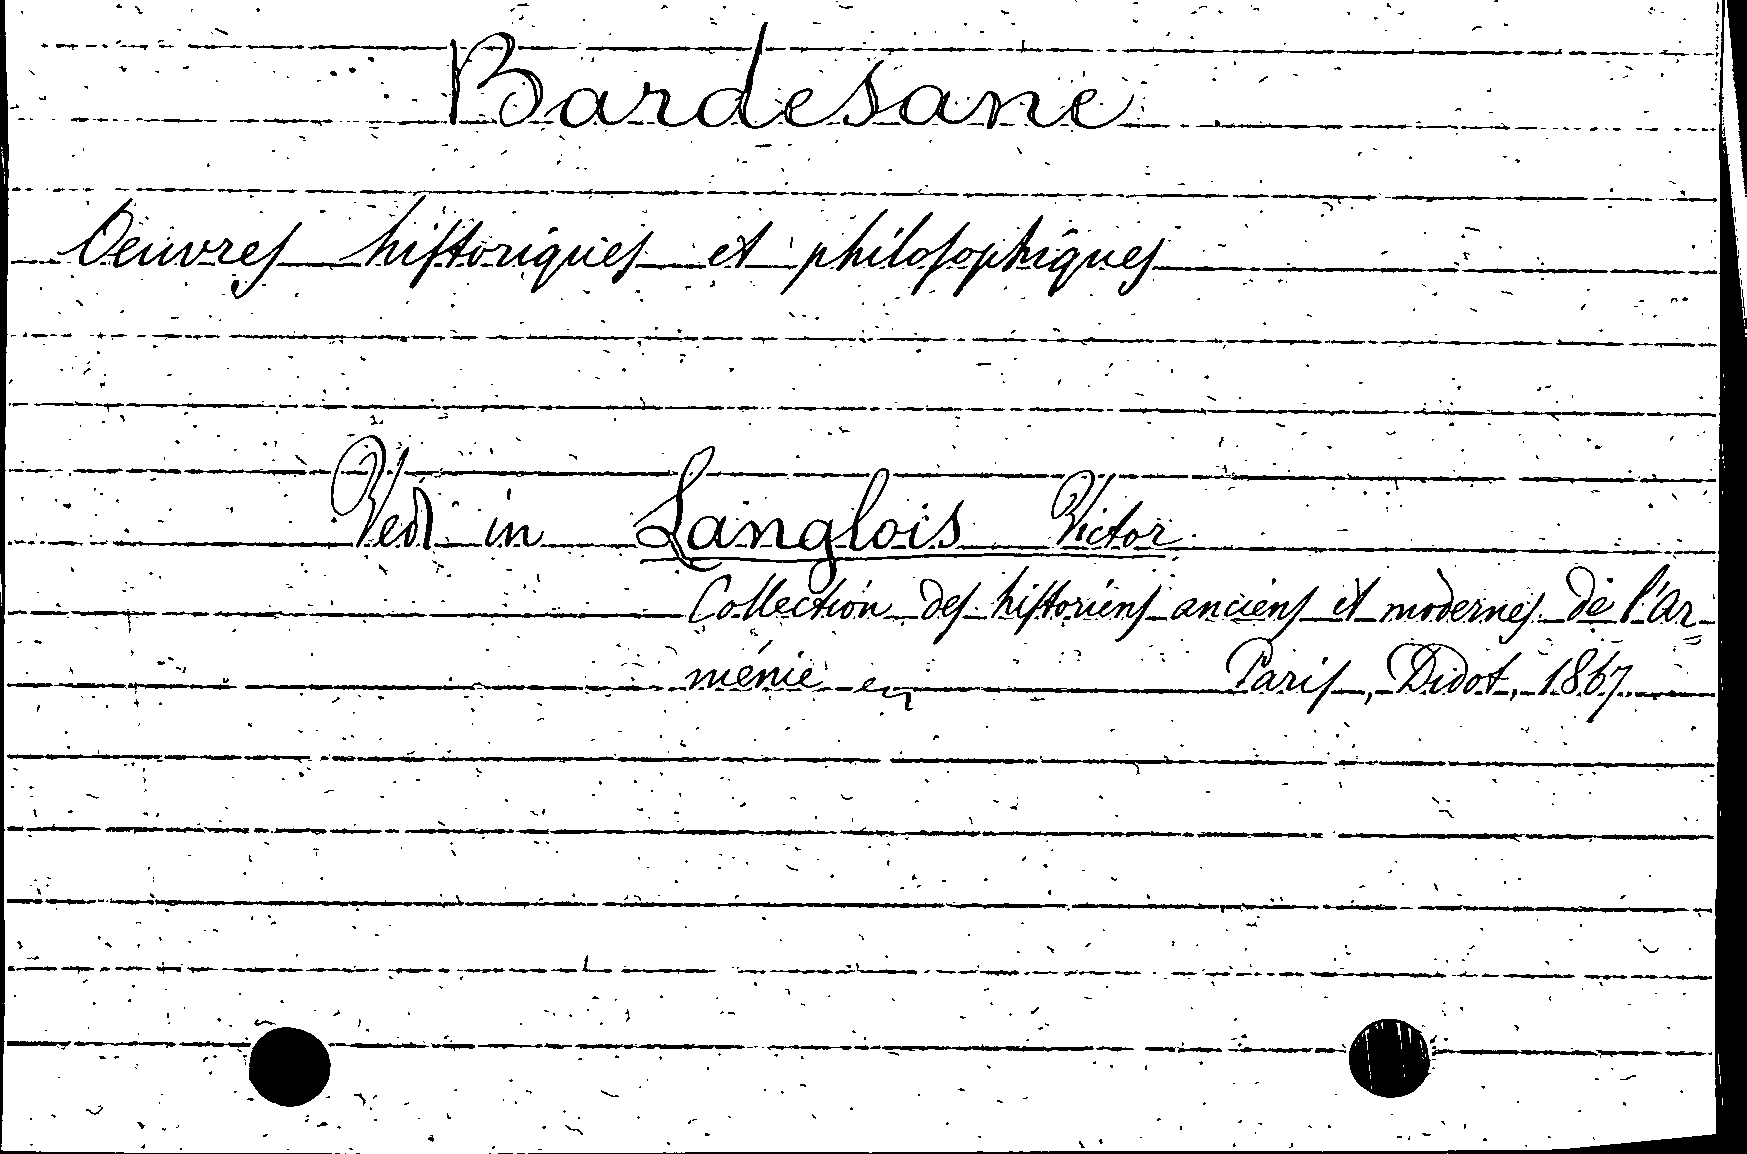 Bardesane
Oeuvres historiques et philosophiques
Vedi in Langlois Victor
Collection des historiens anciens et modernes de l'Ar=
ménie
Paris, Didot, 1867